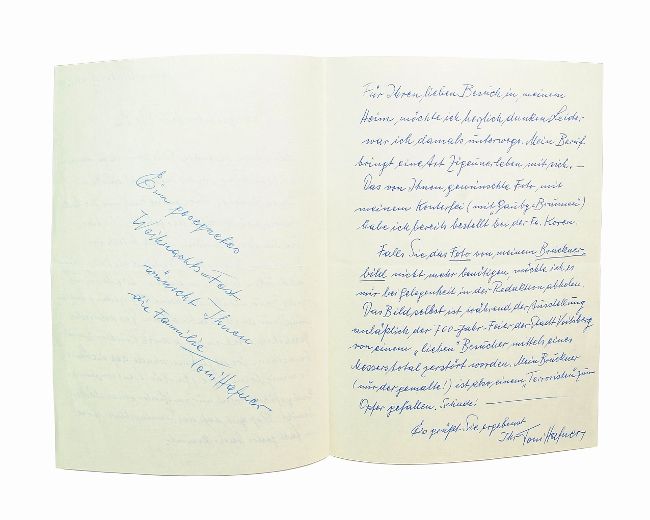 Ein gesegnetes
Weihnachts-Fest
wünscht Ihnen
die Familie
Toni Hafner
Für Ihren, lieben Besuch, in, meinem
Heim, möchte ich herzlich, danken. Leider
war ich damals unterwegs. Mein Beruf
bringt eine Art Zigeunerleben, mit sich. —
Das von Ihnen, gewünschte Foto, mit
meinem Konterfei (mit "Gauby-Brunnen")
habe ich bereits bestellt bei der Fa. Koren.
Falls Sie das Foto von meinem Bruckner-
bild nicht mehr benötigen, möchte ich es
mir bei Gelegenheit in der Redaktion abholen.
Das Bild selbst ist, während der Ausstellung
anläßlich, der 700-Jahr-Feier der Stadt
von einem „lieben" Besucher, mittels eines
Messers total zerstört worden. Mein Bruckner
(nur der gemalte!) ist also, einem „Terroristen" zum
Opfer gefallen. Schade! —
Es grüßt Sie, ergebenst
Ihr Toni Hafner